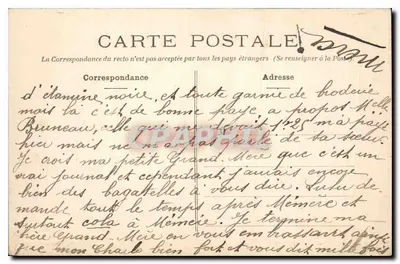 CARTE POSTALE
merci
La Correspondance du recto n'est pas acceptée par tous les pays étrangers (Se renseigner à la Poste)
Correspondance Adresse
d'étamine noire, et toute garnie de broderie
mais là c'est de bonne paye, a propos Melle
Bruneau, elle qui me 1f25 m'a payé
hier mais ne m'a pas parlé de sa sœur.
Je crois ma petite Grand. Mère que c'est un
vrai journal et cependant j'aurais encore
bien des bagatelles à vous dire. Lulu de-
mande tout le temps après Mémère et
surtout cola à Mémère. Je termine ma
chère Grand. Mère en vous embrassant ainsi
que mon Charlo bien fort et vous dit mille fois